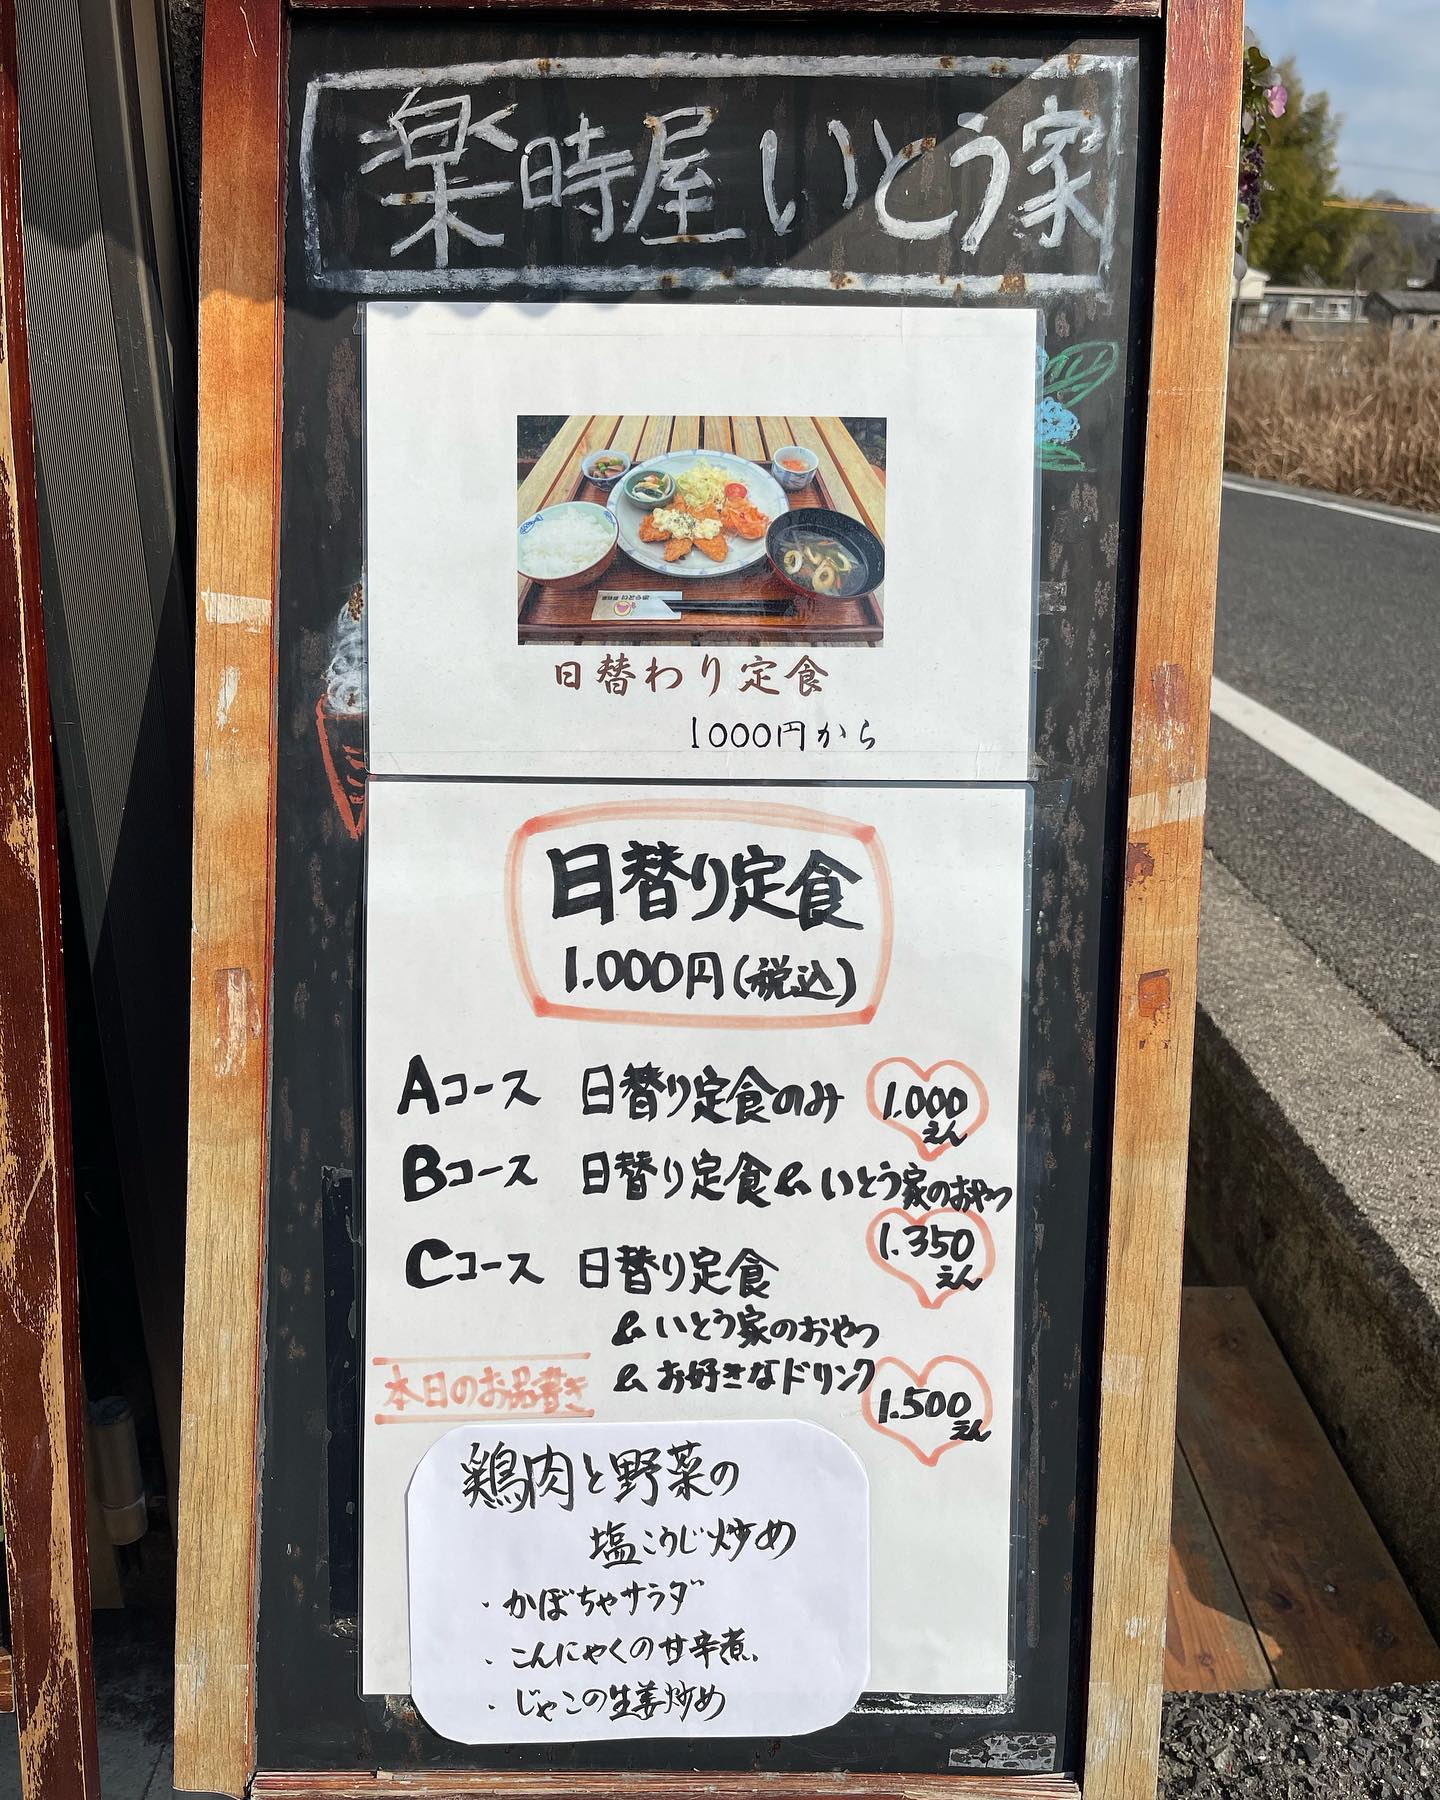 楽時屋 いとう家
日替わり定食
1000円から
日替り定食
1.000円(税込)
Aコース 日替り定食のみ 1.000えん
Bコース 日替り定食 & いとう家のおやつ
1.350えん
Cコース 日替り定食
& いとう家のおやつ
& お好きなドリンク
1.500えん
本日のお品書き
鶏肉と野菜の
塩こうじ炒め
・かぼちゃサラダ
・こんにゃくの甘辛煮、
・じゃこの生姜炒め